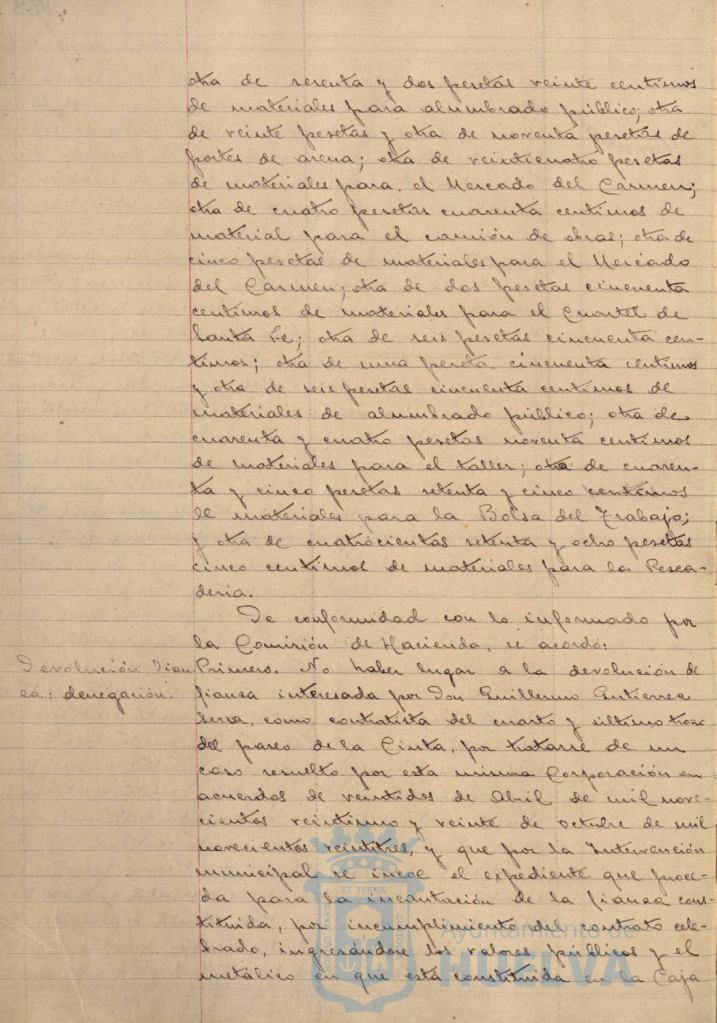 otra de sesenta y dos pesetas veinte centimos
de materiales para alumbrado público; otra
de veinte pesetas y otra de noventa pesetas de
portes de arena; otra de veinticuatro pesetas
de materiales para el Mercado del Carmen;
otra de cuatro pesetas cuarenta centimos de
material para el camión de obras; otra de
cinco pesetas de materiales para el Mercado
del Carmen; otra de dos pesetas cincuenta
centimos de materiales para el Cuartel de
Santa Fe; otra de seis pesetas cincuenta cen-
timos; otra de una peseta cincuenta centimos
y otra de seis pesetas cincuenta centimos de
materiales de alumbrado público; otra de
cuarenta y cuatro pesetas noventa centimos
de materiales para el taller; otra de cuaren-
ta y cinco pesetas setenta y cinco centimos
de materiales para la Bolsa del Trabajo;
y otra de cuatrocientas setenta y ocho pesetas
cinco centimos de materiales para la Pesca-
deria.
De conformidad con lo informado por
la Comisión de Hacienda, se acordó:
Devolución fian
za: denegación.
Primero. No haber lugar a la devolución de
fianza interesada por Don Guillermo Gutierrez
Serra, como contratista del cuarto y último trozo
del paseo de la Cinta, por tratarse de un
caso resuelto por esta misma Corporación en
acuerdos de veintidos de Abril de mil nove-
cientos veintiuno y veinte de octubre de mil
novecientos veintitres, y que por la Intervención
municipal se incoe el expediente que proce-
da para la incautación de la fianza cons-
tituida, por incumplimiento del contrato cele-
brado, ingresándose los valores públicos y el
metálico en que está constituida en la Caja
Ayuntamiento de
HUELVA